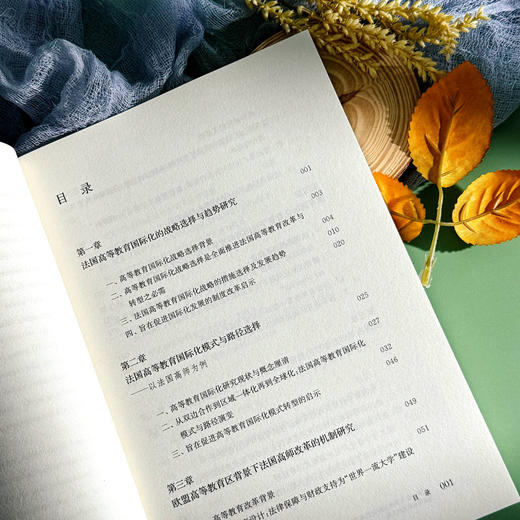 目 录
第一章
法国高等教育国际化的战略选择与趋势研究 001
一、高等教育国际化战略选择背景 003
二、高等教育国际化战略选择是全面推进法国高等教育改革与
转型之必需 004
三、法国高等教育国际化战略的措施选择及发展趋势 010
四、旨在促进国际化发展的制度改革启示 020
第二章
法国高等教育国际化模式与路径选择
——以法国高师为例 025
一、高等教育国际化研究现状与概念厘清 027
二、从双边合作到区域一体化再到全球化:法国高等教育国际化
模式与路径演变
三、旨在促进高等教育国际化模式转型的启示 046
第三章
欧盟高等教育区背景下法国高师改革的机制研究 049
高等教育改革背景 051
设计:法律保障与财政支持为“世界一流大学”建设
目 录 001